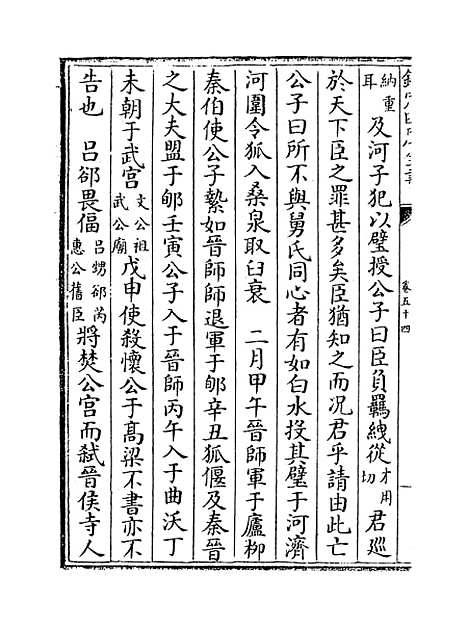 欽定四庫全書
卷五十四
納重耳 及河子犯以璧授公子曰臣負羈絏從 才用切 君巡
於天下臣之罪甚多矣臣猶知之而況君乎請由此亡
公子曰所不與舅氏同心者有如白水投其璧于河濟
河圍令狐入桑泉取臼衰 二月甲午晉師軍于廬柳
秦伯使公子縶如晉師師退軍于郇辛丑狐偃及秦晉
之大夫盟于郇壬寅公子入于晉師丙午入于曲沃丁
未朝于武宮 文公祖武公廟 戊申使殺懷公于高梁不書亦不
告也 呂郤畏偪 呂甥郤芮惠公舊臣 將焚公宮而弒晉侯寺人